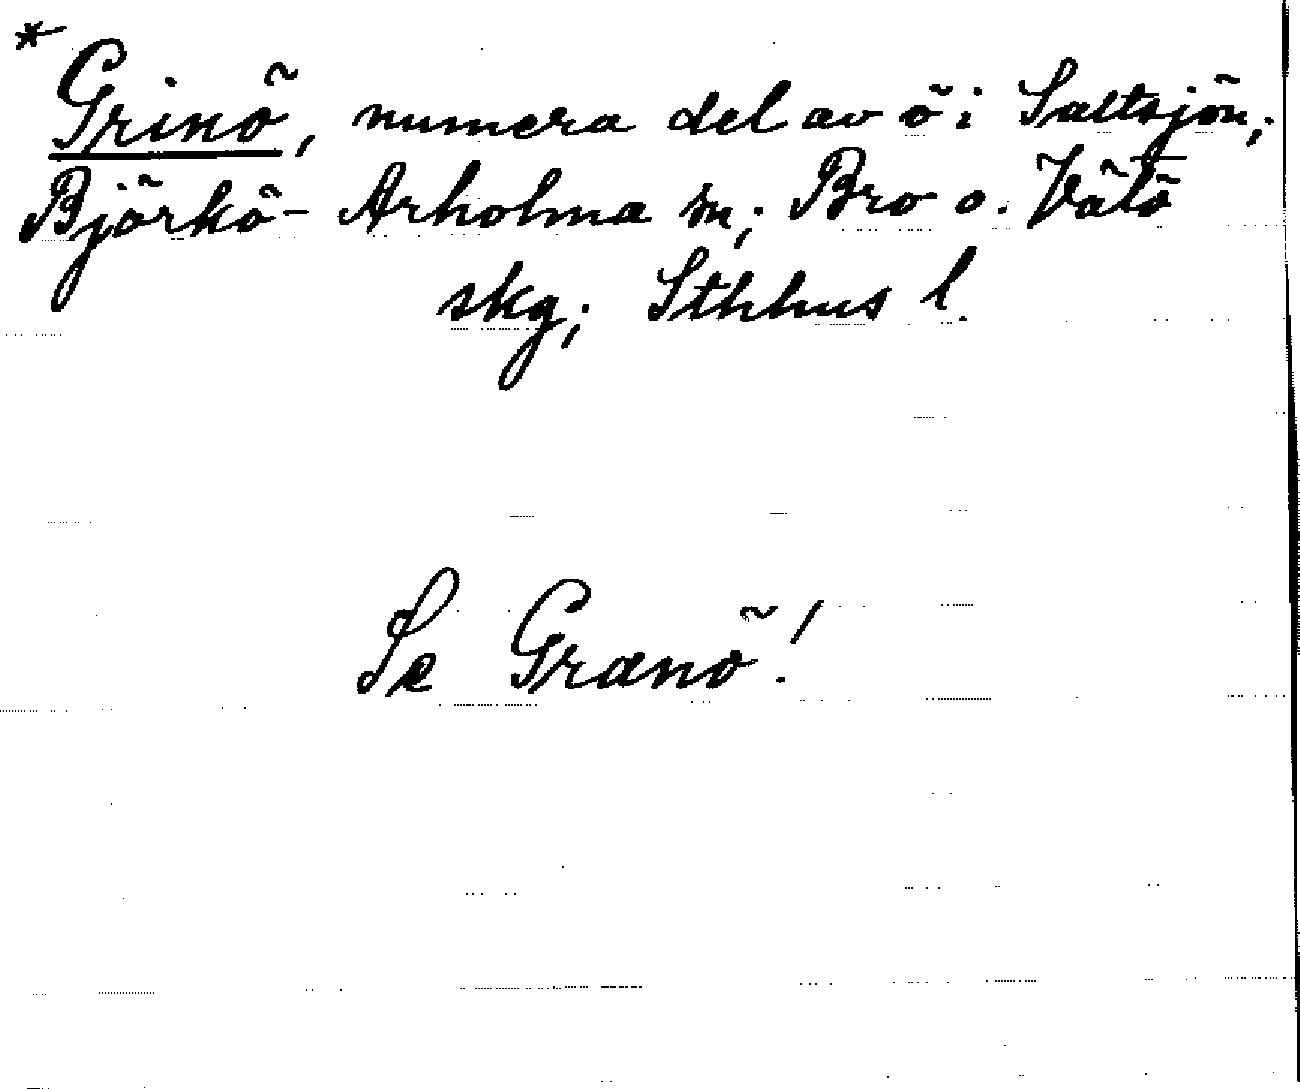 * Grinö, numera del av ö i Saltsjön;
Björkö-Arholma sn; Bro o. Vätö
skg; Sthhus l.
Se Granö!